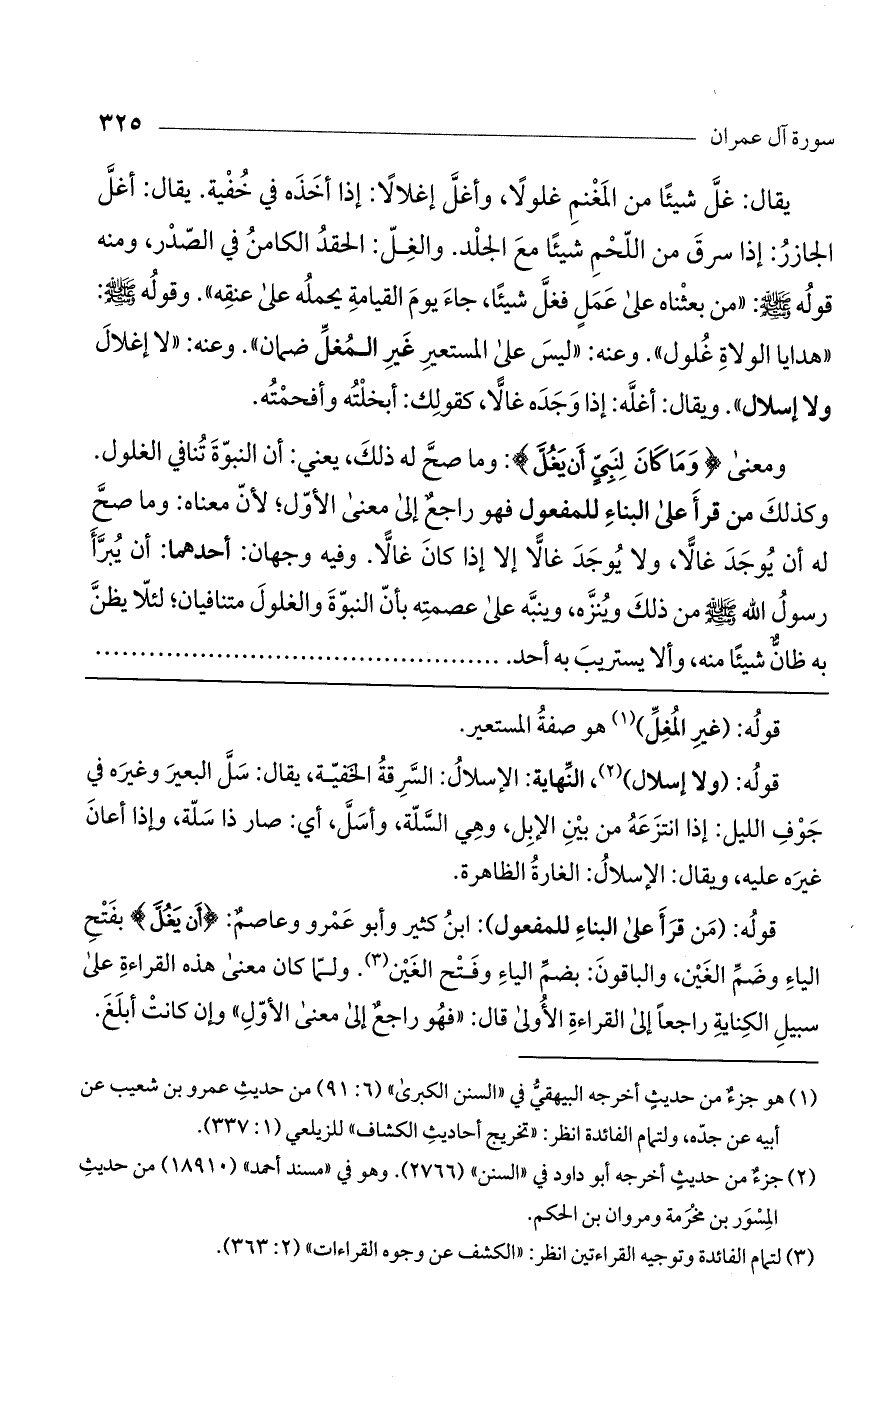 سورة آل عمران ٣٢٥
يقال: غلَّ شيئًا من المَغْنمِ غلولًا، وأغلَّ إغلالًا: إذا أخَذَه في خُفْية. يقال: أغلَّ
الجازرُ: إذا سرقَ من اللّحْمِ شيئًا معَ الجلْد. والغِلّ: الحقدُ الكامنُ في الصّدْر، ومنه
قولُه ﷺ: «من بعثْناه علىٰ عَمَلٍ فغلَّ شيئًا، جاءَ يومَ القيامةِ يحملُه علىٰ عنقِه». وقولُه ﷺ:
«هدايا الولاةِ غُلول». وعنه: «ليسَ علىٰ المستعيرِ غَيرِ المُغلِّ ضمان». وعنه: «لا إغلالَ
ولا إسلال». ويقال: أغله: إذا وَجَدَه غالًّا، كقولِك: أبخلْتُه وأفحمْتُه.
ومعنىٰ ﴿وَمَا كَانَ لِنَبِيٍّ أَن يَغُلَّ﴾: وما صحَّ له ذلكَ، يعني: أن النبوّةَ تُنافي الغلول.
وكذلكَ من قرأَ علىٰ البناءِ للمفعول فهو راجعٌ إلىٰ معنىٰ الأوّل؛ لأنّ معناه: وما صحَّ
له أن يُوجَدَ غالًّا، ولا يُوجَدَ غالًّا إلا إذا كانَ غالًّا. وفيه وجهان: أحدهما: أن يُبرَّأَ
رسولُ الله ﷺ من ذلكَ ويُنزَّه، وينبَّه علىٰ عصمتِه بأنّ النبوّةَ والغلولَ متنافيان؛ لئلّا يظنَّ
به ظانٌّ شيئًا منه، وألا يستريبَ به أحد. ............................................
قولُه: (غيرِ المُغِلِّ)(١) هو صفةُ المستعير.
قولُه: (ولا إسلال)(٢)، النِّهاية: الإسلالُ: السَّرِقةُ الخفيّة، يقال: سَلَّ البعيرَ وغيرَه في
جَوْفِ الليل: إذا انتزَعَهُ من بيْنِ الإبِل، وهِي السَّلّة، وأسَلَّ، أي: صار ذا سَلّة، وإذا أعانَ
غيرَه عليه، ويقال: الإسلالُ: الغارةُ الظاهرة.
قولُه: (مَن قرَأَ علىٰ البناءِ للمفعول): ابنُ كثير وأبو عَمْرو وعاصمٌ: ﴿أَن يَغُلَّ﴾ بفَتْحِ
الياءِ وضَمِّ الغَيْن، والباقونَ: بضمِّ الياءِ وفَتْح الغَيْن(٣). ولمّا كان معنىٰ هذه القراءةِ علىٰ
سبيلِ الكِنايةِ راجعاً إلىٰ القراءةِ الأُولىٰ قال: «فهُو راجعٌ إلىٰ معنىٰ الأوّلِ» وإن كانتْ أبلَغَ.
(١) هو جزءٌ من حديثٍ أخرجه البيهقيُّ في «السنن الكبرىٰ» (٦: ٩١) من حديثِ عمرو بن شعيب عن
أبيه عن جدّه، ولتمام الفائدة انظر: «تخريج أحاديثِ الكشاف» للزيلعي (١: ٣٣٧).
(٢) جزءٌ من حديثٍ أخرجه أبو داود في «السنن» (٢٧٦٦). وهو في «مسند أحمد» (١٨٩١٠) من حديثِ
المِسْوَر بن مَخْرَمة ومروان بن الحكم.
(٣) لتمام الفائدة وتوجيه القراءتين انظر: «الكشف عن وجوه القراءات» (٢: ٣٦٣).